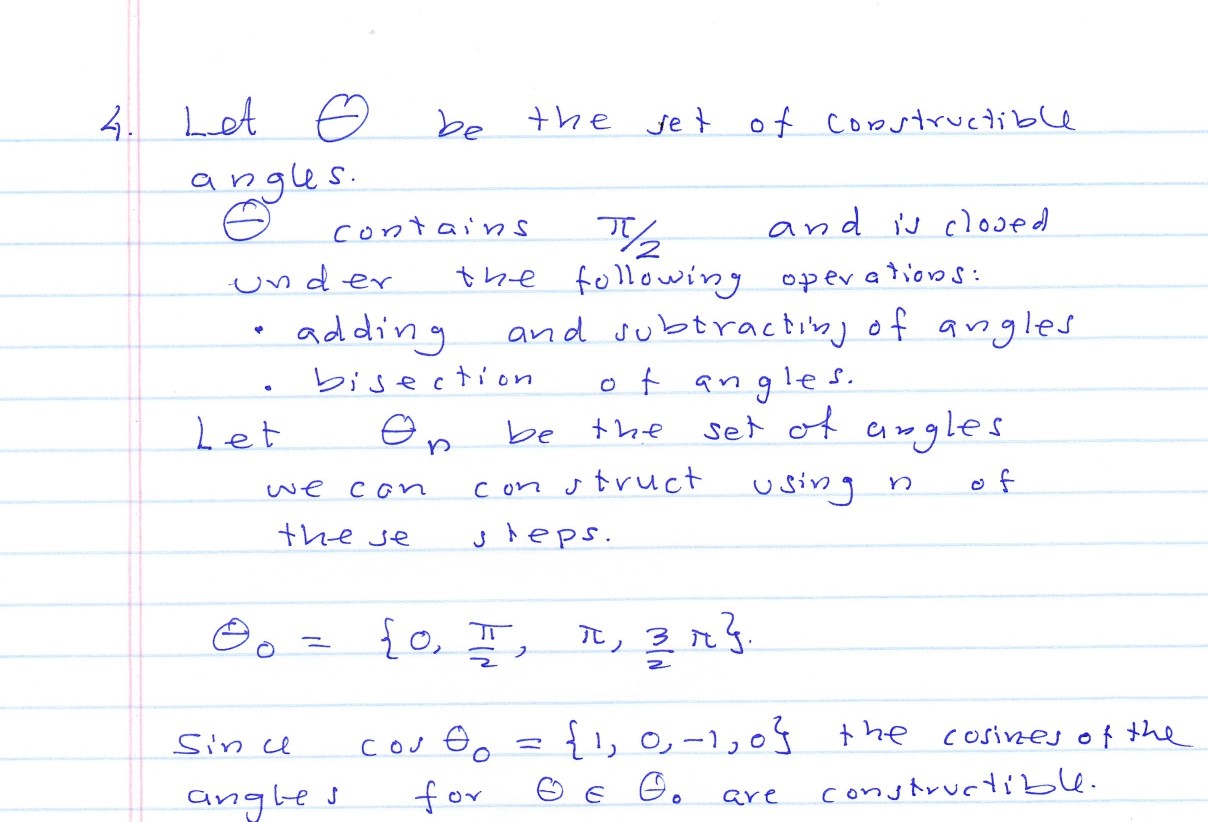 4. Let Θ be the set of constructible
angles.
Θ contains π/2 and is closed
under the following operations:
• adding and subtracting of angles
• bisection of angles.
Let Θₙ be the set of angles
we can construct using n of
these steps.
Θ₀ = {0, π/2, π, 3/2 π}.
Since cos Θ₀ = {1, 0, -1, 0} the cosines of the
angles for Θ ∈ Θ₀ are constructible.